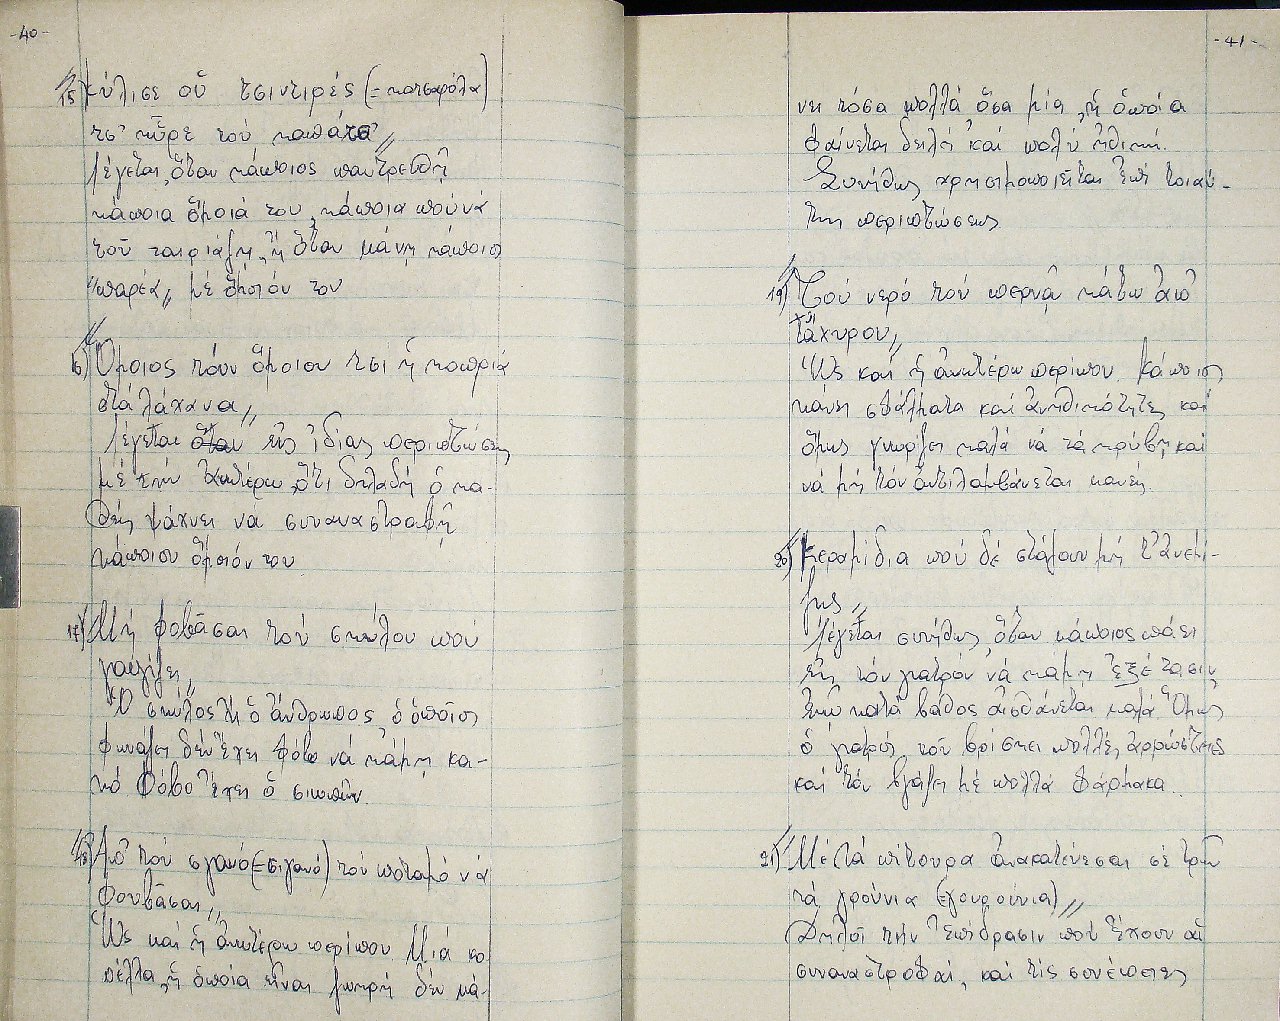 -40-
15) Κύλισε οὗ τσιντιρές (= κατσαρόλα)
τσ' ηὗρε τοὺ καπάτσ'„
Λέγεται, ὅταν κάποιος παντρευθῆ
κάποια ὅμοιά του, κάποια πού νά
τοῦ ταιριάζη, ἤ ὅταν κάνη κάποιος
„παρέα„ μέ ὅμοιόν του
16) Ὅμοιος τόν ὅμοιον τσι ἡ κοπριά
στά λάχανα„
Λέγεται εἰς ἰδίας περιπτώσεις
μέ τήν ἀνωτέρω, ὅτι δηλαδή ὁ κα-
θείς ψάχνει νά συναναστραφῆ
κάποιον ὅμοιόν του
17) Μή φοβᾶσαι τοὐ σκύλου πού
γαυγίζει„
Ὁ σκύλος ἤ ὁ ἄνθρωπος ὁ ὁποῖος
φωνάζει δέν ἔχει φόβο νά κάμη κα-
κό Φόβο ἔχει ὁ σιωπῶν.
18) Ἀπ' τού σγανό (= σιγανό) τού πόταμό νά
φουβᾶσαι„
Ὡς καί ἡ ἀνωτέρω περίπου. Μιά κο-
πέλλα, ἡ ὁποία εἶναι ζωηρή δέν κά-
-41-
νει τόσα πολλά ὅσα μία, ἡ ὁποία
φαίνεται δειλή καί πολύ ἠθική.
Συνήθως χρησιμοποιεῖται ἐπί τοιαύ-
της περιπτώσεως
19) Τού νερό τού περνᾶ κάτω ἀπ'
τἄχυρου„
Ὡς καί ἡ ἀνωτέρω περίπου. Κάποιος
κάνει σφάλματα καί ἀνηθικότητες καί
ὅμως γνωρίζει καλά νά τά κρύβη καί
νά μή τόν ἀντιλαμβάνεται κανείς.
20) Κεραμίδια πού δέ στάζουν μή τ' ἀνεμί-
ζης„
Λέγεται συνήθως, ὅταν κάποιος πάει
εἰς τόν γιατρόν νά κάμη ἐξέτασιν
ἐνῶ κατά βάθος αἰσθάνεται καλά Ὅμως
ὁ γιατρός τοῦ βρίσκει πολλές ἀρρώστειες
καί τόν βγάζει μέ πολλά φάρμακα.
21) Μέ τά πίτουρα ἀνακατεύεσαι σέ τρῶν
τά γρούνια (γουρούνια)„
Δηλοῖ τήν ἐπίδρασιν πού ἔχουν αἱ
συναναστροφαί, καί τίς συνέπειες